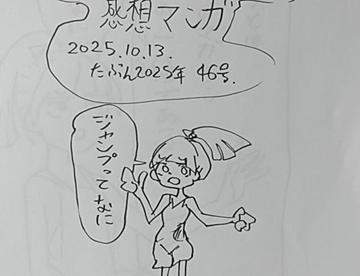 感想マンガ
2025.10.13.
たぶん2025年 46号.
ジャンプって
なに